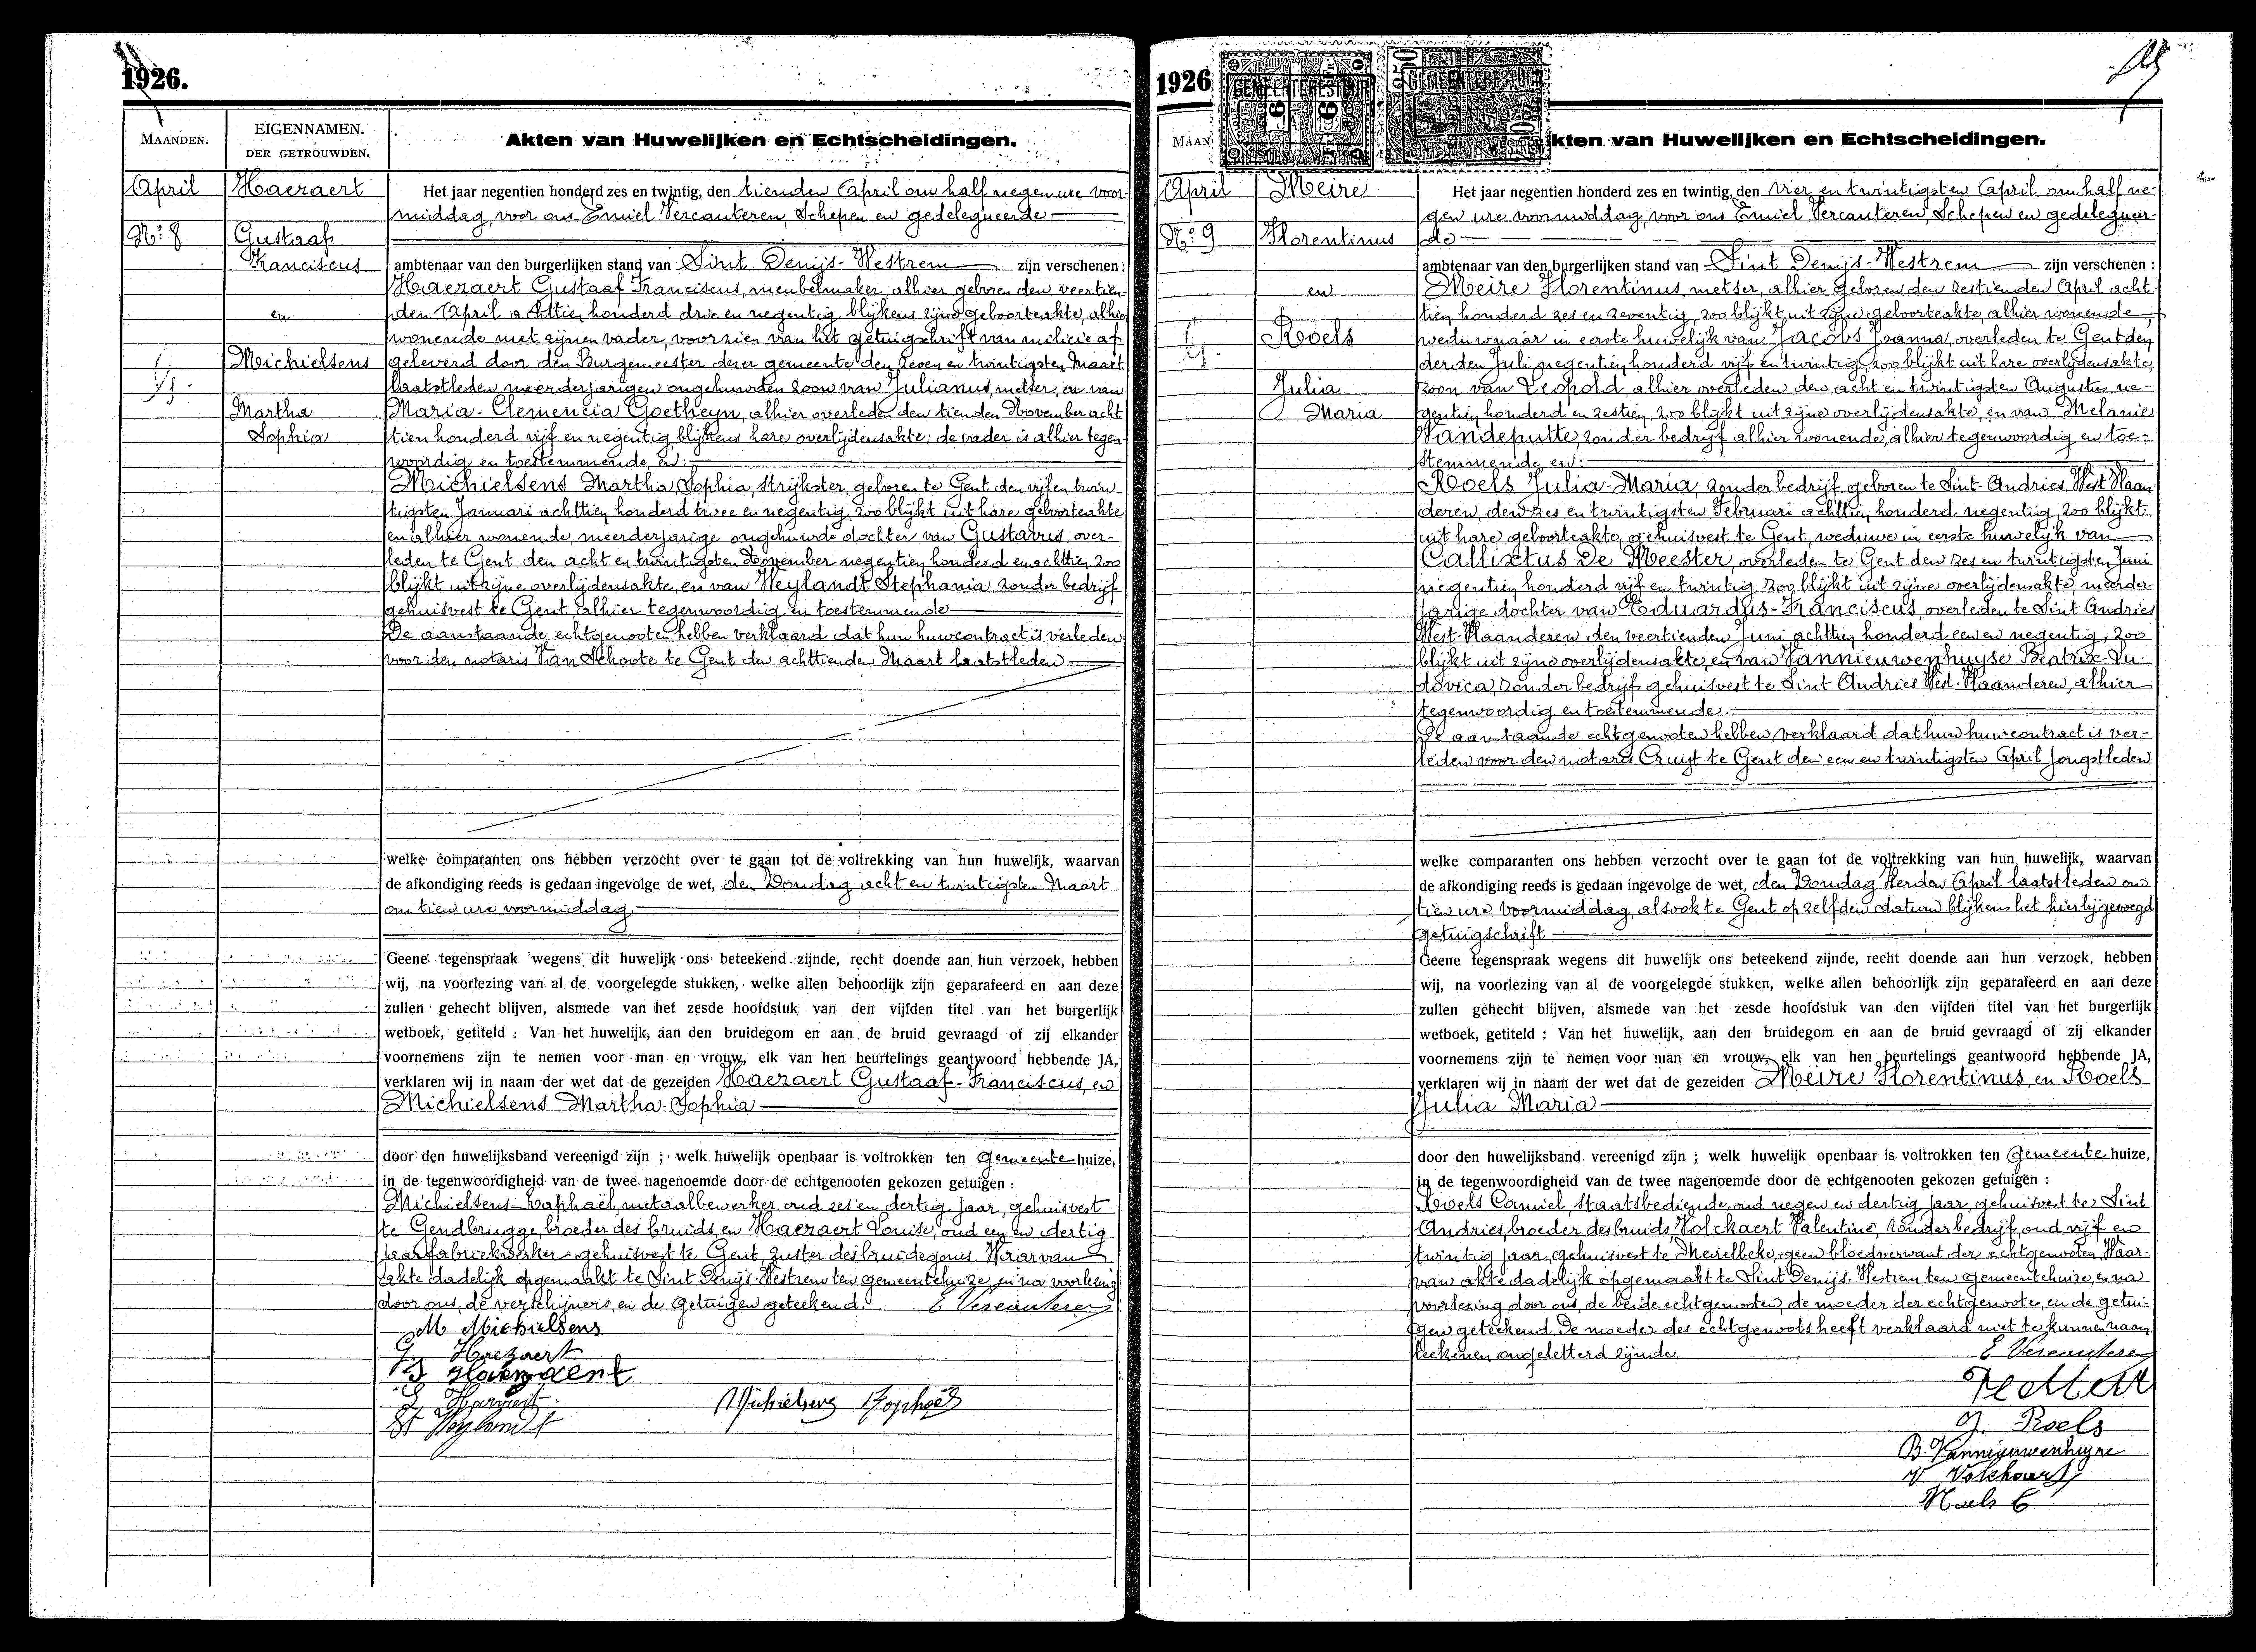 1926.
MAANDEN.
EIGENNAMEN.
DER GETROUWDEN.
Akten van Huwelijken en Echtscheidingen.
April
Haezaert
Nr 8
Gustaaf
Franciscus
en
Michielsens
Martha
Sophia
Het jaar negentien honderd zes en twintig, den tienden April om half negen ure voor-
middag, voor ons Emiel Vercauteren, Schepen en gedelegueerde
ambtenaar van den burgerlijken stand van Sint Denijs-Westrem zijn verschenen :
Haezaert Gustaaf Franciscus, meubelmaker, alhier geboren den veertien-
den April achttien honderd drie en negentig, blijkens zijne geboorteakte, alhier
wonende met zijnen vader, voorzien van het getuigschrift van militie af
geleverd door den Burgemeester dezer gemeente den zeven en twintigsten Maart
laatstleden, meerderjarigen ongehuwden zoon van Julianus, metser, en van
Maria-Clemencia Goetheyn, alhier overleden den tienden November acht
tien honderd vijf en negentig, blijkens hare overlijdensakte; de vader is alhier tegen-
woordig en toestemmende, en:
Michielsens Martha Sophia, strijkster, geboren te Gent den vijf en twin
tigsten Januari achttien honderd twee en negentig, zoo blijkt uit hare geboorteakte
en alhier wonende, meerderjarige ongehuwde dochter van Gustavus, over-
leden te Gent den acht en twintigsten November negentien honderd en achttien, zoo
blijkt uit zijne overlijdensakte, en van Heylandt Stephania, zonder bedrijf
gehuisvest te Gent, alhier tegenwoordig en toestemmende
De aanstaande echtgenooten hebben verklaard dat hun huwcontract is verleden
voor den notaris Van Schoote te Gent den achttienden Maart laatstleden
welke comparanten ons hebben verzocht over te gaan tot de voltrekking van hun huwelijk, waarvan
de afkondiging reeds is gedaan ingevolge de wet, den Zondag acht en twintigsten Maart
om tien ure voormiddag
Geene tegenspraak wegens dit huwelijk ons beteekend zijnde, recht doende aan hun verzoek, hebben
wij, na voorlezing van al de voorgelegde stukken, welke allen behoorlijk zijn geparafeerd en aan deze
zullen gehecht blijven, alsmede van het zesde hoofdstuk van den vijfden titel van het burgerlijk
wetboek, getiteld : Van het huwelijk, aan den bruidegom en aan de bruid gevraagd of zij elkander
voornemens zijn te nemen voor man en vrouw, elk van hen beurtelings geantwoord hebbende JA,
verklaren wij in naam der wet dat de gezeiden Haezaert Gustaaf-Franciscus, en
Michielsens Martha-Sophia
door den huwelijksband vereenigd zijn ; welk huwelijk openbaar is voltrokken ten Gemeente huize,
in de tegenwoordigheid van de twee nagenoemde door de echtgenooten gekozen getuigen :
Michielsens Raphaël, metaalbewerker, oud zes en dertig jaar, gehuisvest
te Gendbrugge, broeder des bruids, en Haezaert Louise, oud een en dertig
jaar fabriekwerker gehuisvest te Gent, zuster des bruidegoms. Waarvan
akte dadelijk opgemaakt te Sint Denijs-Westrem ten gemeentehuize, en na voorlezing
door ons, de verschijners, en de getuigen geteekend. E Vercauteren
M Michielsens
G. Haezaert
J Haezaert
L Haezaert
Michielsens Raphaël
St Heylandt
1926
MAAN
kten van Huwelijken en Echtscheidingen.
GEMEENTEBESTUUR
GEMEENTEBESTUUR
April
Meire
Nr 9
Florentinus
en
Roels
Julia
Maria
Het jaar negentien honderd zes en twintig, den vier en twintigsten April om half ne-
gen ure voormiddag, voor ons Emiel Vercauteren, Schepen en gedelegueer-
de
ambtenaar van den burgerlijken stand van Sint Denijs-Westrem zijn verschenen :
Meire Florentinus, metser, alhier geboren den zestienden April acht
tien honderd zes en zeventig, zoo blijkt uit zijne geboorteakte, alhier wonende,
weduwnaar in eerste huwelijk van Jacobs Joanna, overleden te Gent den
derden Juli negentien honderd vijf en twintig, zoo blijkt uit hare overlijdensakte,
zoon van Leopold, alhier overleden den acht en twintigsten Augustus ne-
gentien honderd en zestien, zoo blijkt uit zijne overlijdensakte, en van Melanie
Vandeputte, zonder bedrijf alhier wonende, alhier tegenwoordig en toe-
stemmende, en:
Roels Julia-Maria, zonder bedrijf, geboren te Sint-Andries, West Vlaan-
deren, den zes en twintigsten Februari achttien honderd negentig, zoo blijkt
uit hare geboorteakte, gehuisvest te Gent, weduwe in eerste huwelijk van
Callixtus De Meester, overleden te Gent den zes en twintigsten Juni
negentien honderd vijf en twintig zoo blijkt uit zijne overlijdensakte, meerder-
jarige dochter van Eduardus-Franciscus, overleden te Sint Andries
West-Vlaanderen den veertienden Juni achttien honderd een en negentig, zoo
blijkt uit zijne overlijdensakte, en van Vannieuwenhuyse Beatrix-Lu-
dovica, zonder bedrijf gehuisvest te Sint Andries West-Vlaanderen, alhier
tegenwoordig en toestemmende.
De aanstaande echtgenooten hebben verklaard dat hun huwcontract is ver-
leden voor den notaris Cruyt te Gent den een en twintigsten April jongstleden
welke comparanten ons hebben verzocht over te gaan tot de voltrekking van hun huwelijk, waarvan
de afkondiging reeds is gedaan ingevolge de wet, den Zondag April laatstleden om
tien ure voormiddag, alsook te Gent op zelfden datum blijkens het hierbijgevoegd
getuigschrift
Geene tegenspraak wegens dit huwelijk ons beteekend zijnde, recht doende aan hun verzoek, hebben
wij, na voorlezing van al de voorgelegde stukken, welke allen behoorlijk zijn geparafeerd en aan deze
zullen gehecht blijven, alsmede van het zesde hoofdstuk van den vijfden titel van het burgerlijk
wetboek, getiteld : Van het huwelijk, aan den bruidegom en aan de bruid gevraagd of zij elkander
voornemens zijn te nemen voor man en vrouw, elk van hen beurtelings geantwoord hebbende JA,
verklaren wij in naam der wet dat de gezeiden Meire Florentinus, en Roels
Julia Maria
door den huwelijksband vereenigd zijn ; welk huwelijk openbaar is voltrokken ten Gemeente huize,
in de tegenwoordigheid van de twee nagenoemde door de echtgenooten gekozen getuigen :
Roels Camiel, staatsbediende, oud negen en dertig jaar, gehuisvest te Sint
Andries, broeder des bruids, Volckaert Valentine, zonder bedrijf, oud vijf en
twintig jaar, gehuisvest te Merelbeke, geen bloedverwant der echtgenooten, Waar-
van akte dadelijk opgemaakt te Sint Denijs-Westrem ten gemeentehuize, en na
voorlezing door ons, de beide echtgenooten, de moeder der echtgenoote, en de getui-
gen geteekend. De moeder des echtgenoots heeft verklaard niet te kunnen naam
teekenen ongeletterd zijnde. E Vercauteren
J. Roels
B. Vannieuwenhuyse
V Volckaert
Roels C